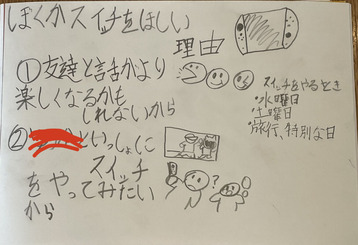 ぼくがスイッチをほしい
理由
①友達と話がより
楽しくなるかも
しれないから
スイッチをやるとき
・水曜日
・土曜日
・旅行、特別な日
②といっしょに
スイッチ
をやってみたい
から
?